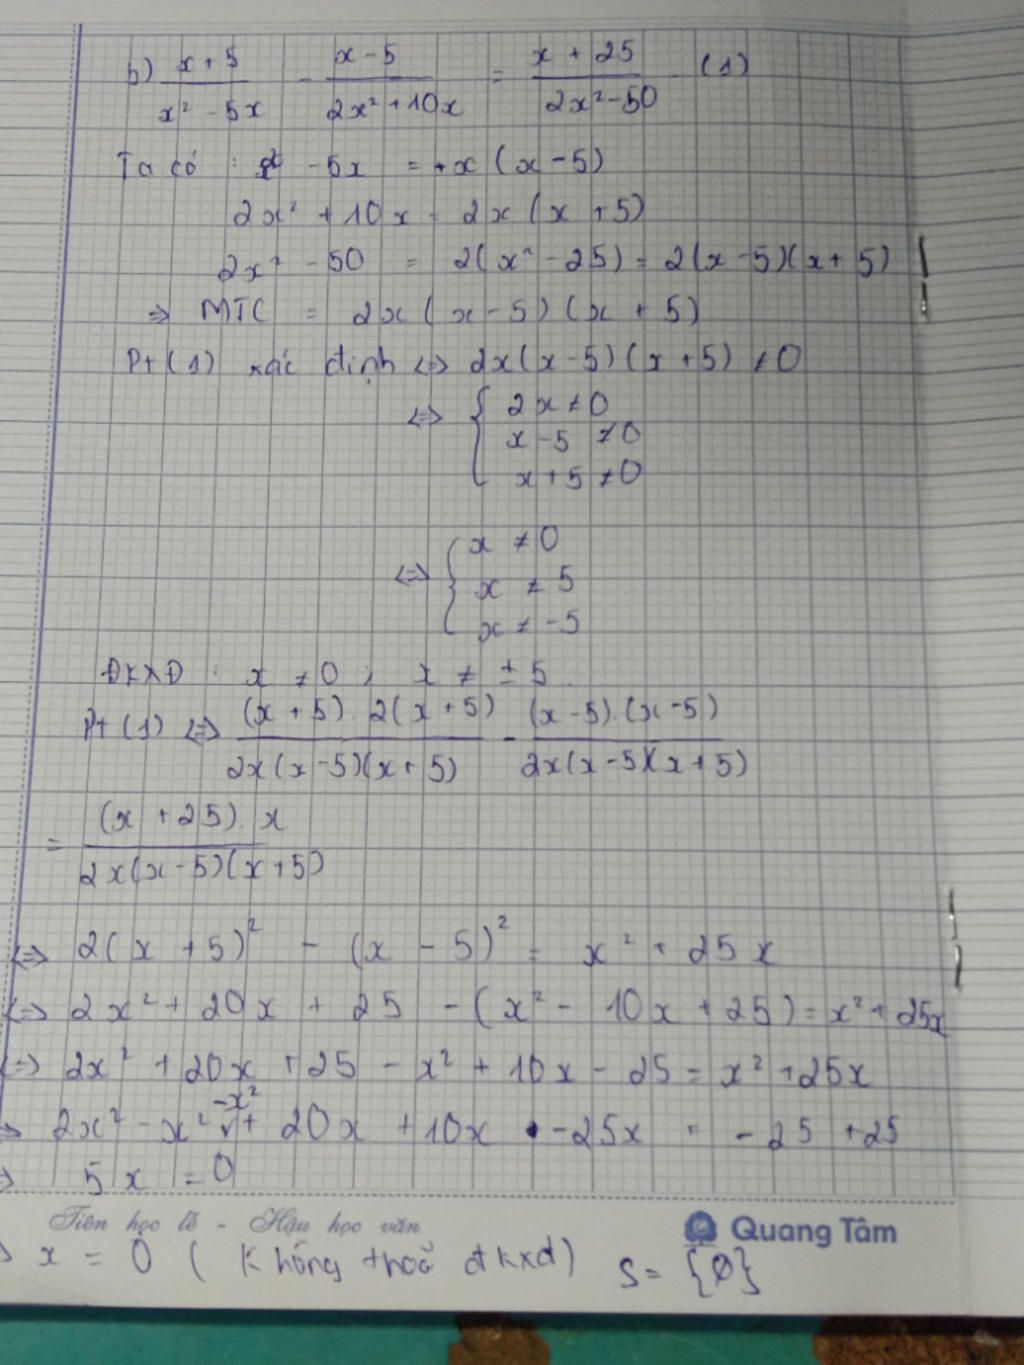 b) (x + 5)/(x² - 5x) - (x - 5)/(2x² + 10x) = (x + 25)/(2x² - 50) (1)
Ta có : x² - 5x = x (x - 5)
2x² + 10x = 2x (x + 5)
2x² - 50 = 2(x² - 25) = 2(x - 5)(x + 5)
=> MTC = 2x (x - 5) (x + 5)
Pt (1) xác định <=> 2x (x - 5) (x + 5) ≠ 0
<=> { 2x ≠ 0
x - 5 ≠ 0
x + 5 ≠ 0
<=> { x ≠ 0
x ≠ 5
x ≠ -5
ĐKXĐ : x ≠ 0 ; x ≠ ± 5.
Pt (1) <=> ((x + 5) . 2(x + 5))/(2x(x - 5)(x + 5)) - ((x - 5) . (x - 5))/(2x(x - 5)(x + 5))
= ((x + 25) . x)/(2x(x - 5)(x + 5))
<=> 2(x + 5)² - (x - 5)² = x² + 25x
<=> 2x² + 20x + 25 - (x² - 10x + 25) = x² + 25x
<=> 2x² + 20x + 25 - x² + 10x - 25 = x² + 25x
=> 2x² - x² - x² + 20x + 10x - 25x = - 25 + 25
=> 5x = 0
Tiên học lễ - Hậu học văn
Quang Tâm
x = 0 ( Không thoả đkxđ) S = {Ø}